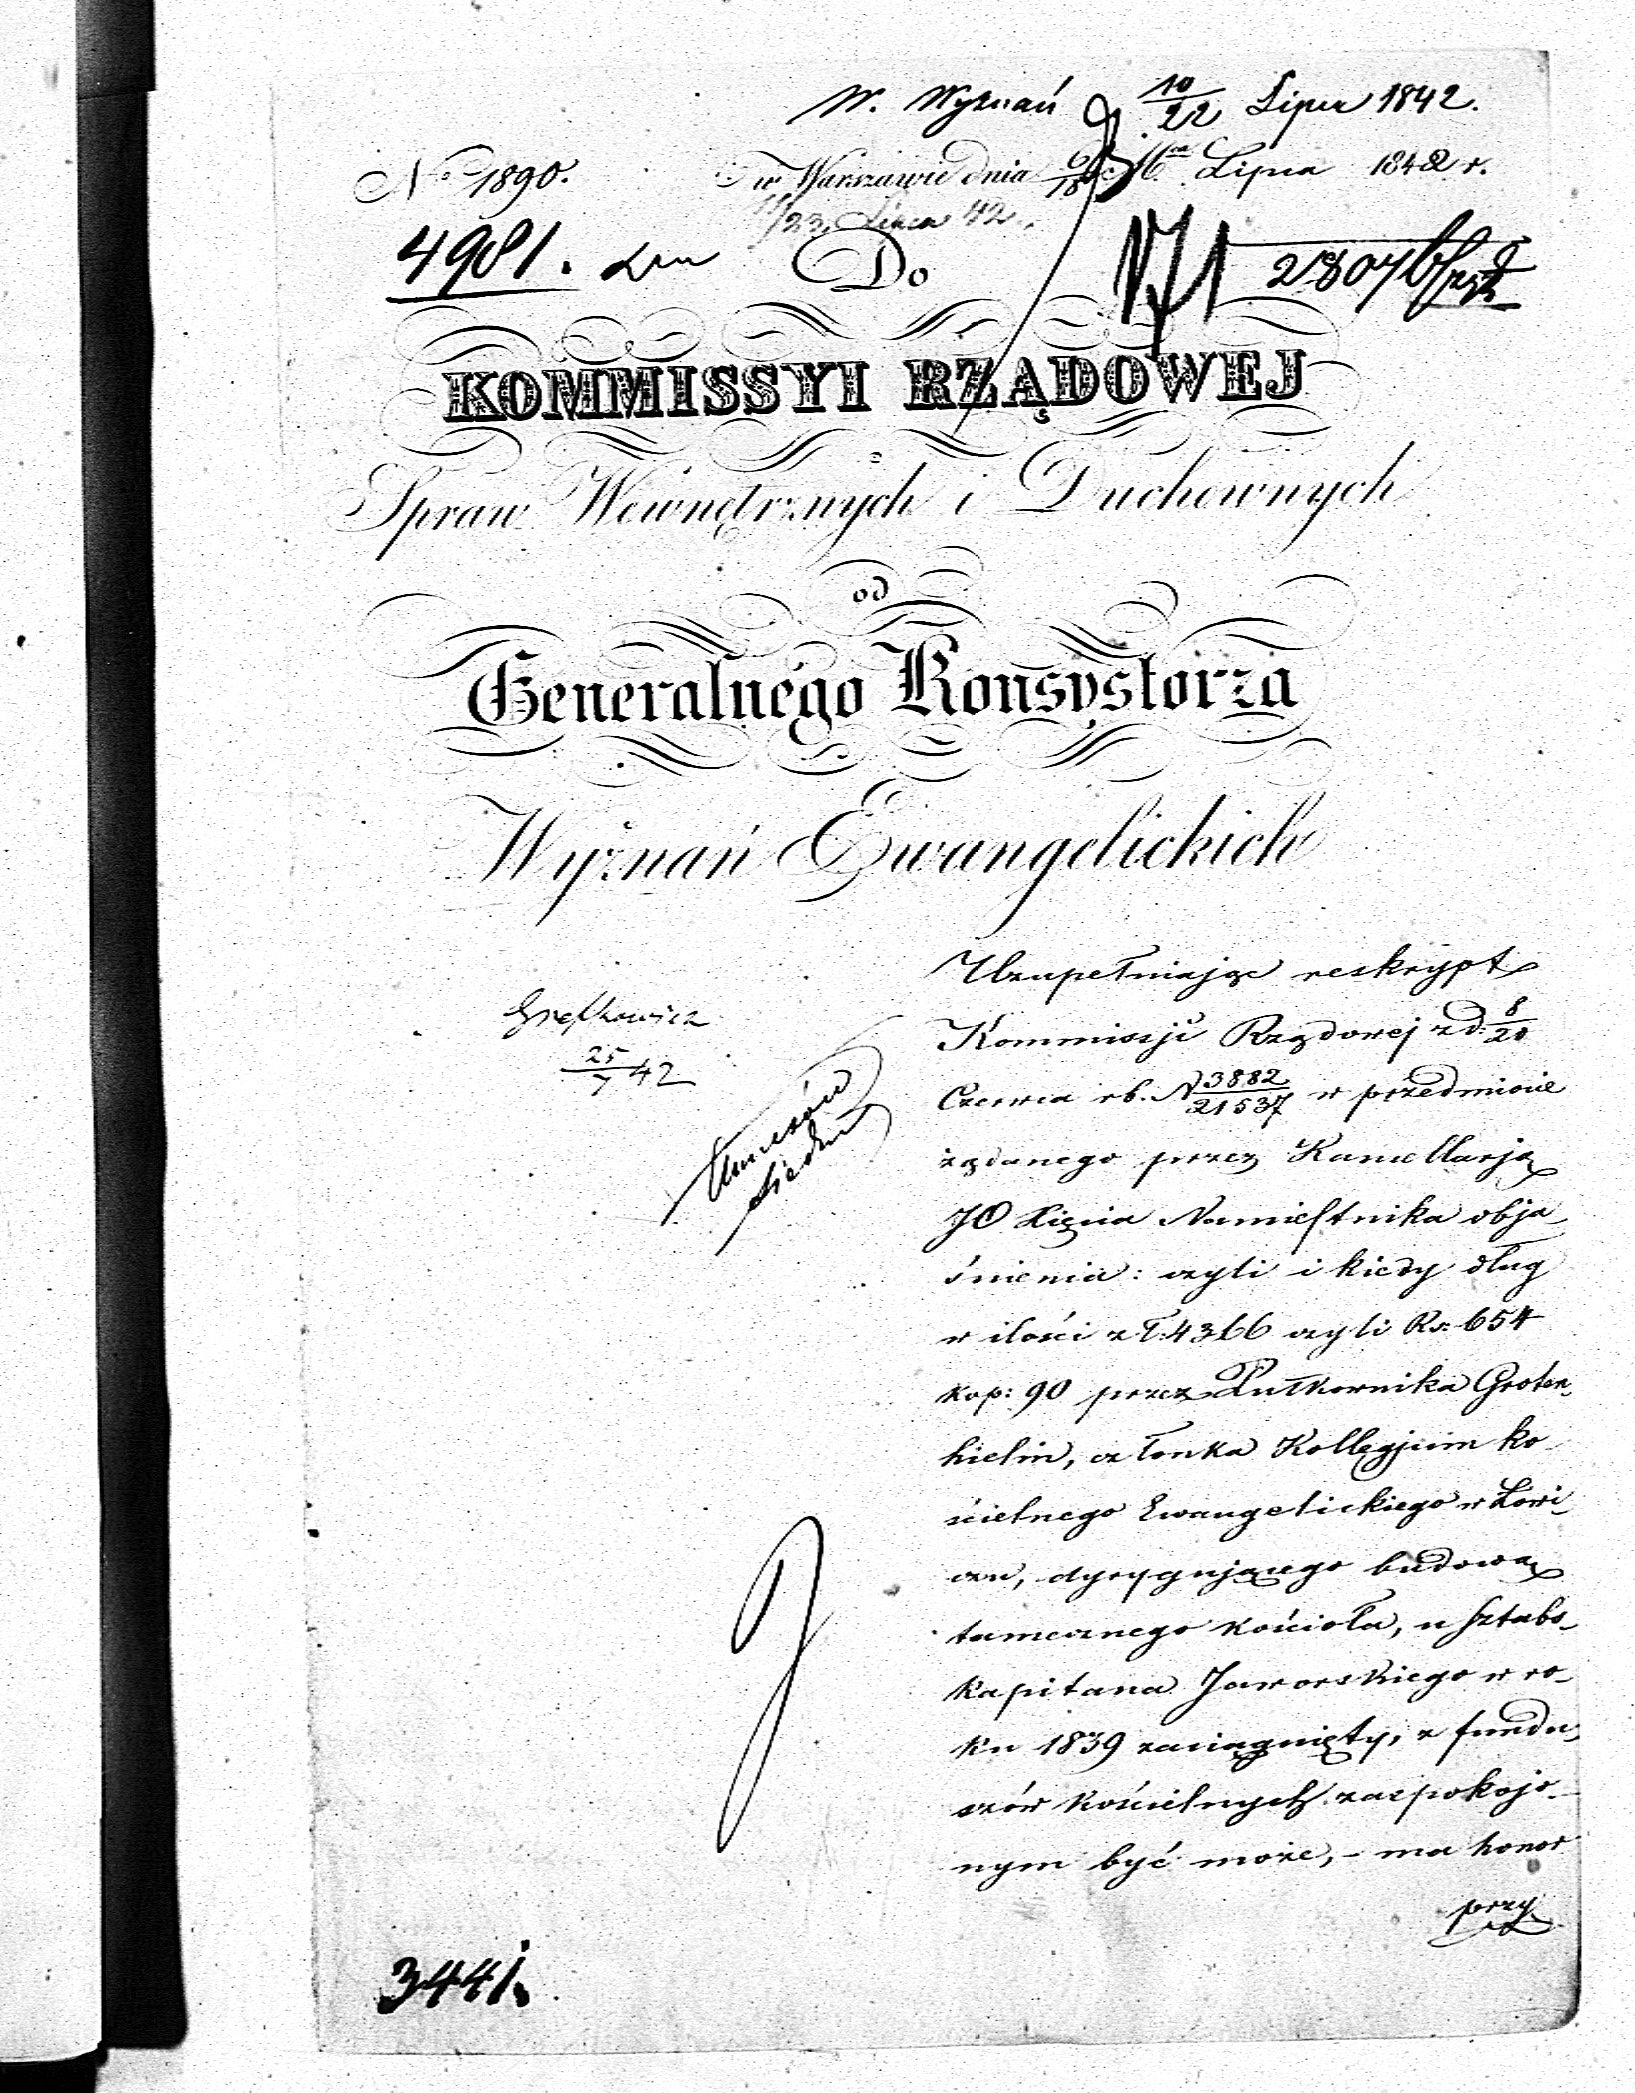 W. Wyznań 10/22 Lipca 1842.
No 1890. w Warszawie dnia 6/18 Lipca 1842 r.
/23 Lipca 42.
4981. Do 28076
KOMMISSYI RZĄDOWEJ
Spraw Wewnętrznych i Duchownych
od
Generalnego Konsystorza
Wyznań Ewangelickich
Uzupełniając reskrypt
Kommissji Rządowej z d: 8/20
25/7 42
Czerwca rb. N 3882/21537 w przedmiocie
żądanego przez Kancellarją
JO Xięcia Namiestnika obja-
śnienia: czyli i kiedy dług
w ilości zł: 4366 czyli Rs: 654
kop: 90 przez Pułkownika Groten-
hielm, członka Kollegjum ko-
ścielnego Ewangelickiego w Łowi-
czu, dyrygującego budową
tamecznego kościoła, u Sztabs-
kapitana Jaworskiego w ro-
ku 1839 zaciągnięty, z fundu-
szów kościelnych zaspokojo-
nym być może, - ma honor
przy
3441.